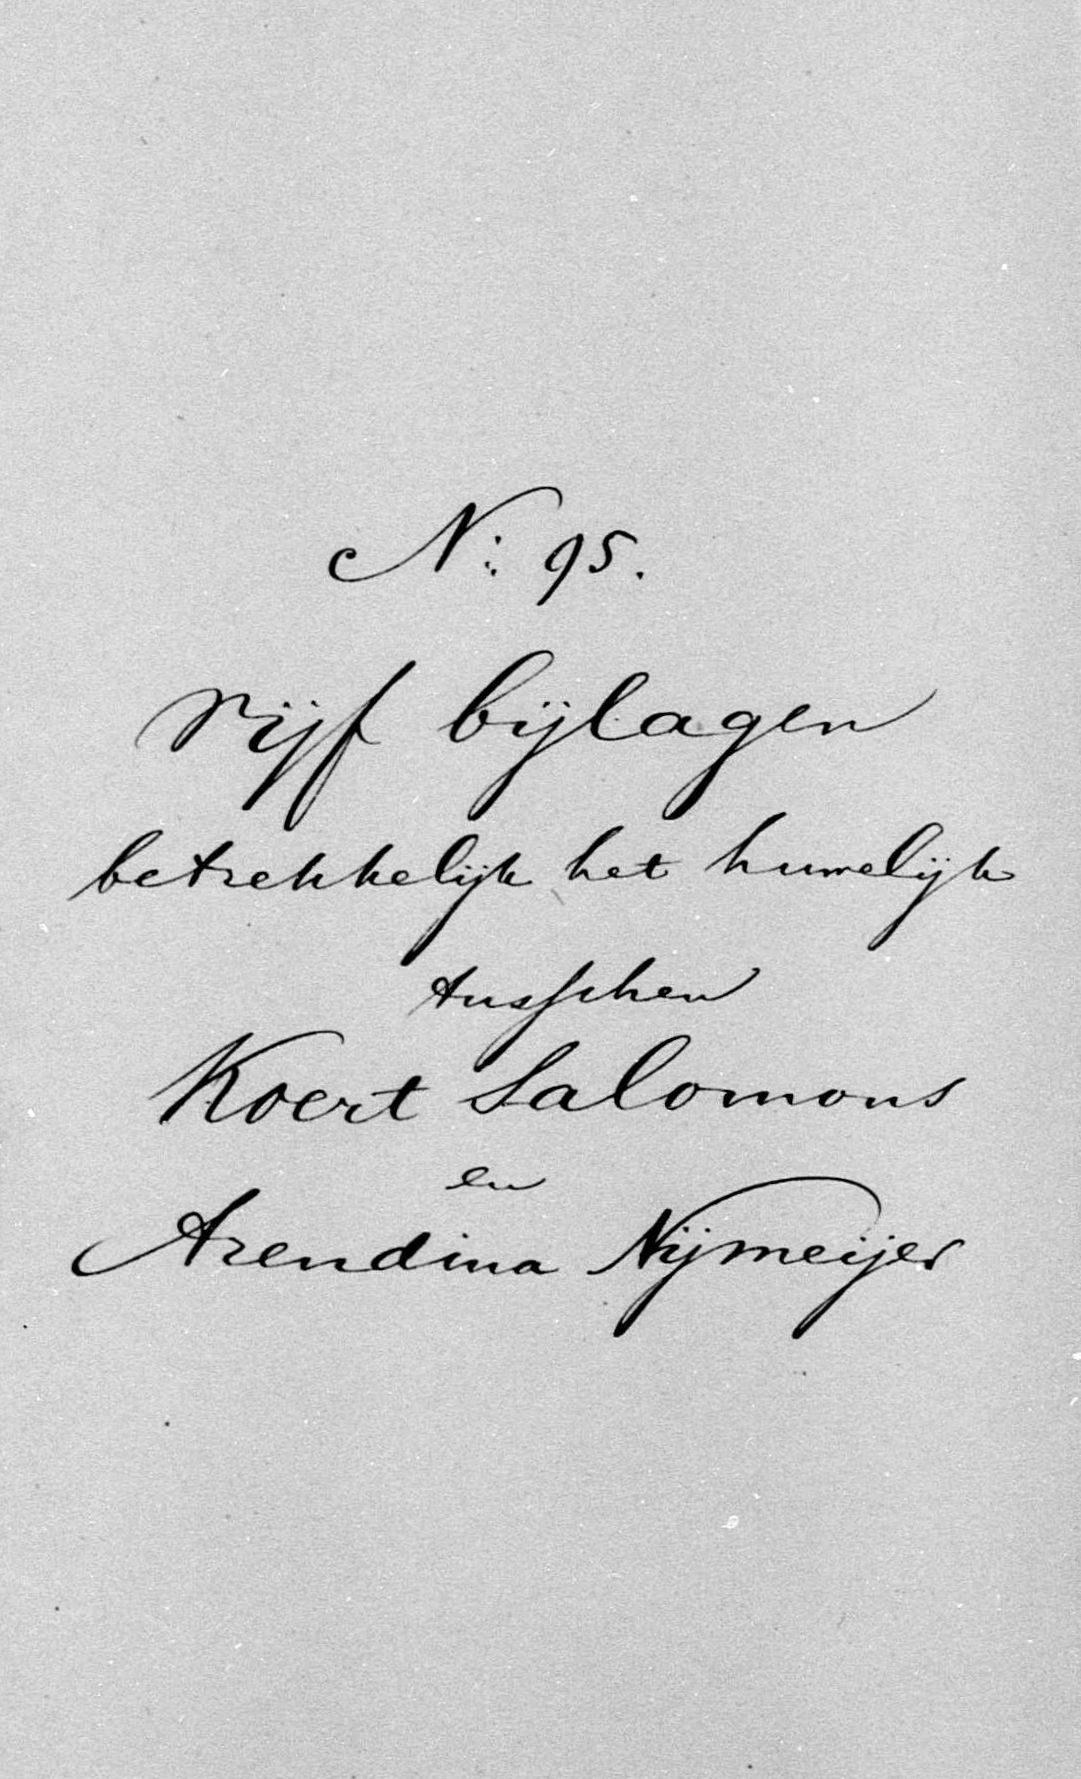 N: 95.
vijf bijlagen
betrekkelijk het huwelijk
tusschen
Koert Salomons
en
Arendina Nijmeijer